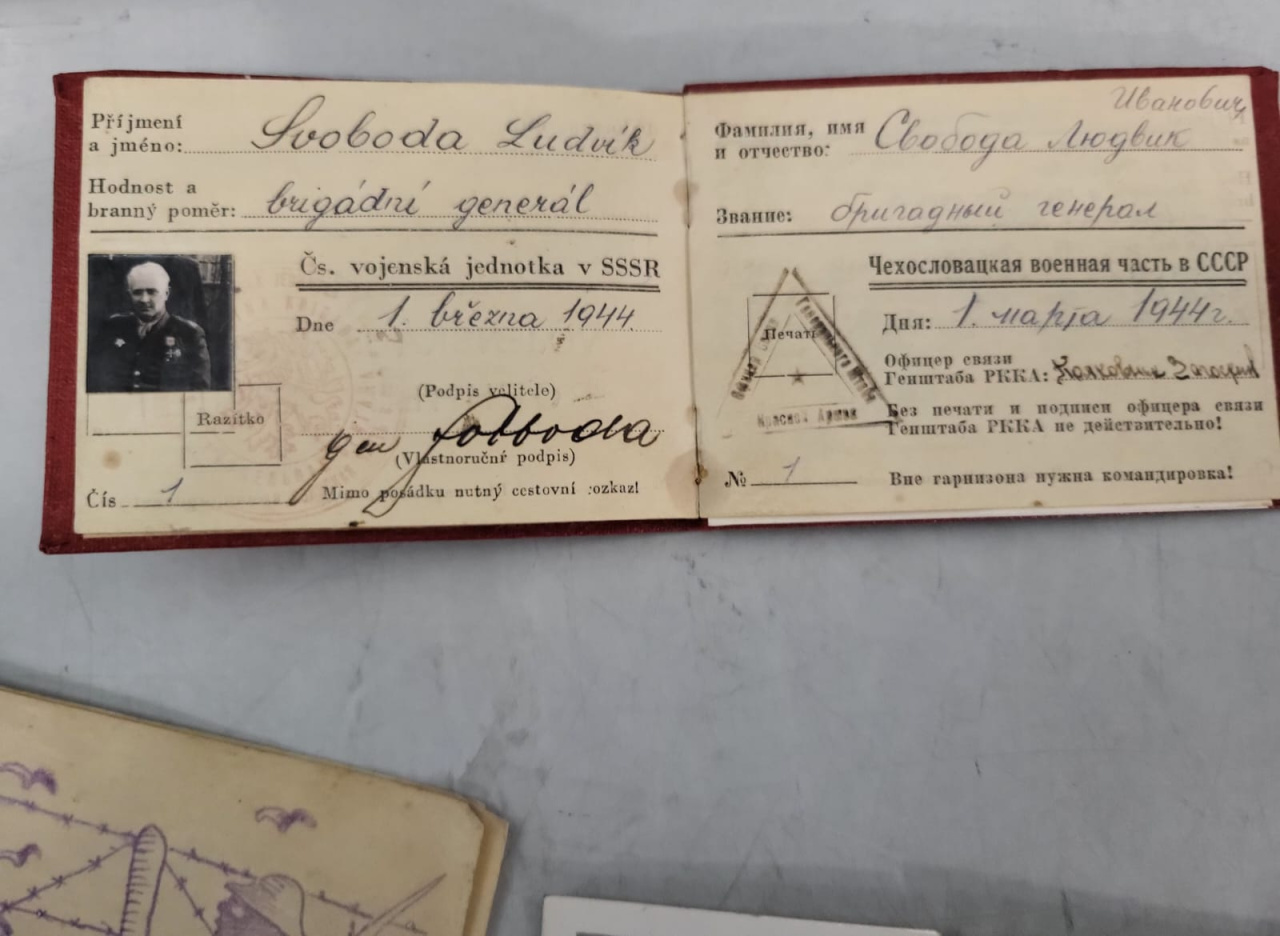 Příjmení
a jméno: Svoboda Ludvík
Hodnost a
branný poměr: brigádní generál
Čs. vojenská jednotka v SSSR
Dne 1. března 1944
(Podpis velitele)
Razítko
gen Svoboda
(Vlastnoruční podpis)
Čís. 1
Mimo posádku nutný cestovní rozkaz!
Иванович
Фамилия, имя
и отчество: Свобода Людвик
Звание: бригадный генерал
Чехословацкая военная часть в СССР
Дня: 1. марта 1944г.
Печать
Генерального Штаба
Красной Армии
Офицер связи
Генштаба РККА: Полковник
Без печати и подписи офицера связи
Генштаба РККА не действительно!
№ 1
Вне гарнизона нужна командировка!